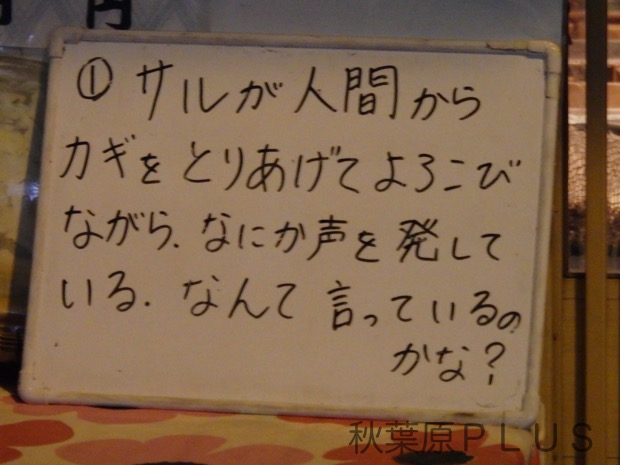 円
① サルが人間から
カギをとりあげてよろこび
ながら、なにか声を発して
いる. なんて言っているの
かな?
秋葉原PLUS